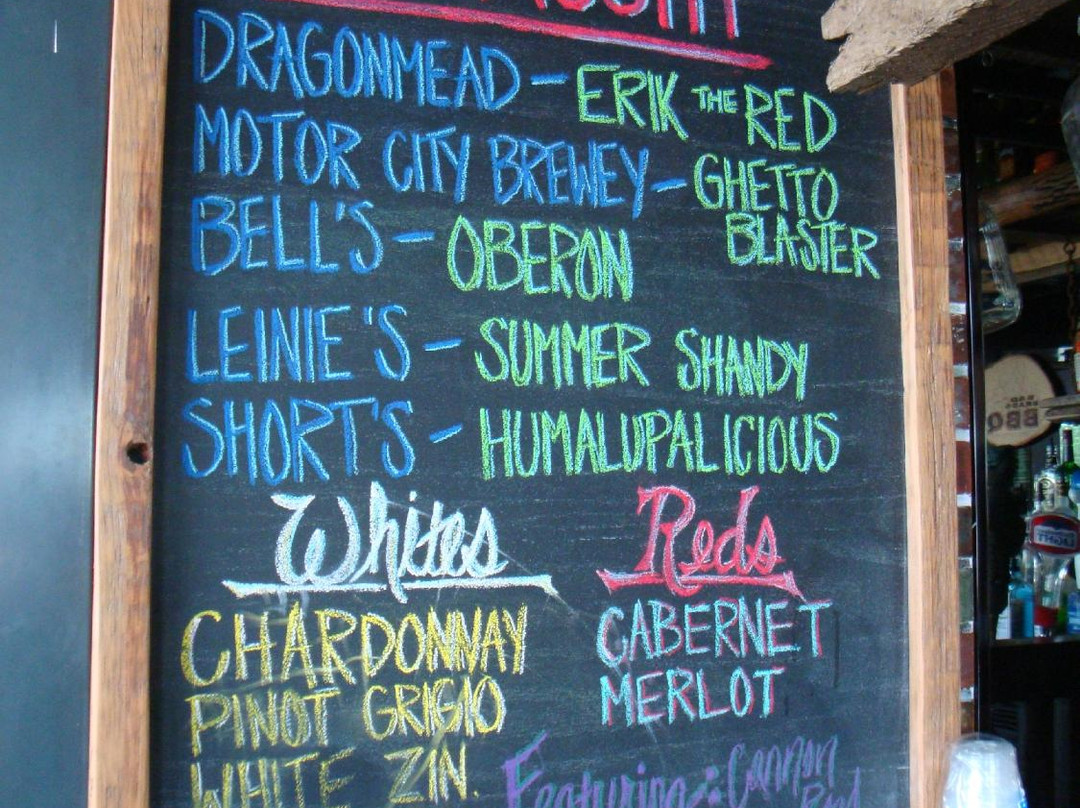 DRAGONMEAD - ERIK THE RED
MOTOR CITY BREWEY - GHETTO
BLASTER
BELL'S - OBERON
LEINIE'S - SUMMER SHANDY
SHORT'S - HUMALUPALICIOUS
Whites
CHARDONNAY
PINOT GRIGIO
WHITE ZIN.
Reds
CABERNET
MERLOT
Featuring: Cannon
BBQ